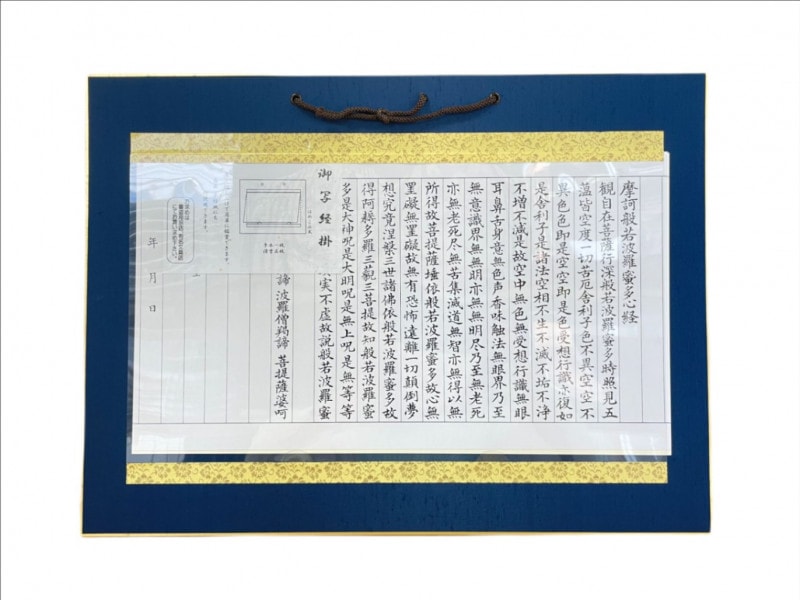 摩訶般若波羅蜜多心経
観自在菩薩行深般若波羅蜜多時照見五
蘊皆空度一切苦厄舎利子色不異空空不
異色色即是空空即是色受想行識亦復如
是舎利子是諸法空相不生不滅不垢不浄
不増不減是故空中無色無受想行識無眼
耳鼻舌身意無色声香味触法無眼界乃至
無意識界無無明亦無無明尽乃至無老死
亦無老死尽無苦集滅道無智亦無得以無
所得故菩提薩埵依般若波羅蜜多故心無
罣礙無罣礙故無有恐怖遠離一切顛倒夢
想究竟涅槃三世諸佛依般若波羅蜜多故
得阿耨多羅三藐三菩提故知般若波羅蜜
多是大神呪是大明呪是無上呪是無等等
御写経掛
実不虚故説般若波羅蜜
諦 波羅僧羯諦 菩提薩婆訶
年 月 日